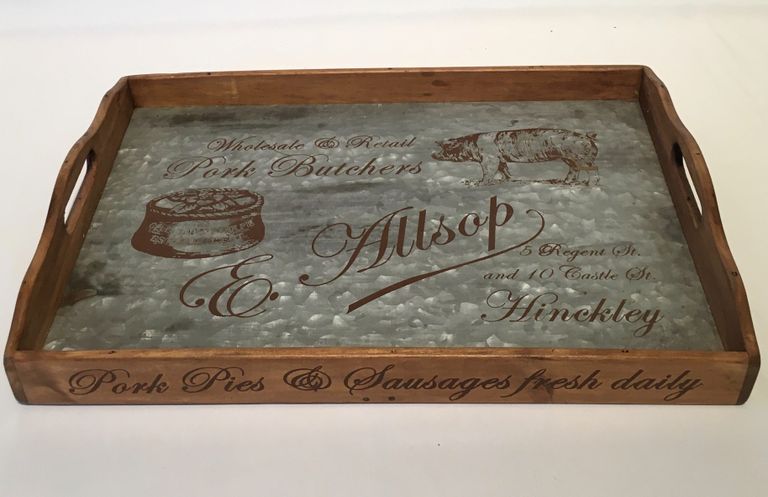 Wholesale & Retail
Pork Butchers
E. Allsop
5 Regent St.
and 10 Castle St.
Hinckley
Pork Pies & Sausages fresh daily